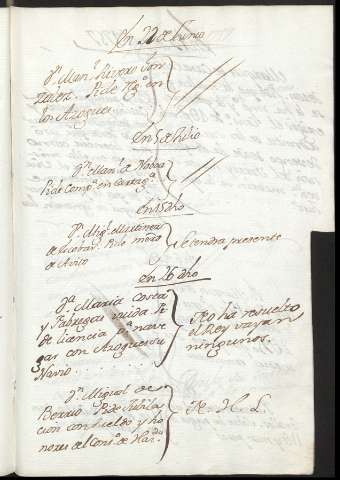 En 22 de Junio
Dn. Manl. Rivero Gon
zalez. Pide
los Azogues
En 5 de Julio
Dn. Manl. de Navas
Pide Compa. en Cartaga.
En 15 dho
Dn. Migl. Martinez
Pide modo
de Avito
Se tendra presente
En 26 dho
Da. Maria Costa
y Fabregas viuda Pe.
de licencia pa. nave
gar con Azogues su
Navio
No ha resuelto
el Rey vayan
ningunos.
Dn. Miguel de
Berrio Pide Jubila
cion con sueldo y ho
nores del Conso. de Hazda.
N. H. L.